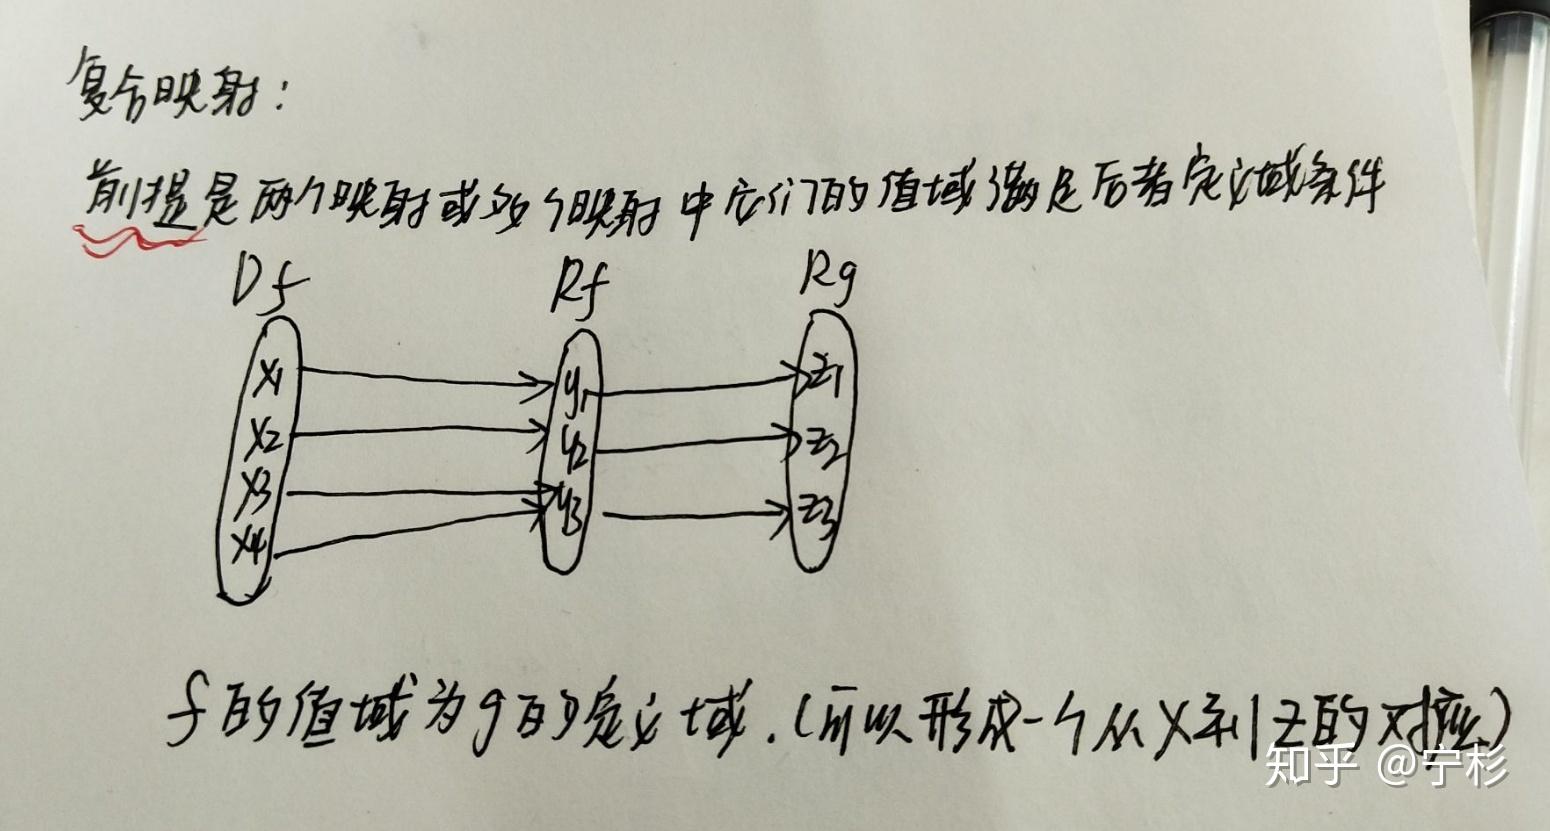 复合映射：
前提是两个映射或多个映射中它们的值域满足后者定义域条件
Df Rf Rg
x1 y1 z1
x2 y2 z2
x3 y3 z3
x4
f的值域为g的定义域.(可以形成一个从X到Z的对应)
知乎 @宁杉